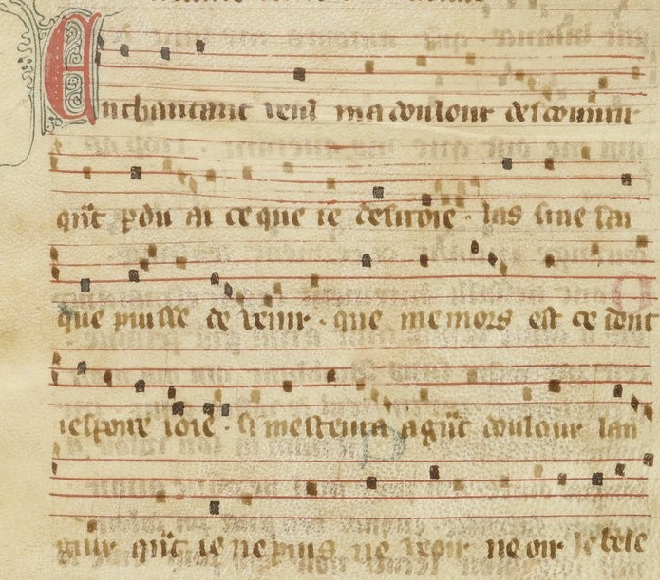 Enchantant veul ma doulour descouurir
qñt pdu ai ce que ie desiroie · las si ne sai
que puisse de venir · que me mors est ce dont
iespoire ioie · si mesteura a gñt doulour lan
guir qñt ie ne puis ne veoir ne oir le bele